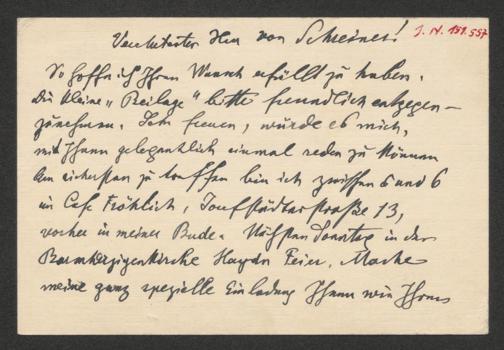 Verehrtester Herr von Schreiner!
J. N. 151.557
So hoffe ich Ihren Wunsch erfüllt zu haben.
Die kleine „Beilage" bitte freundlich entgegen-
zunehmen. Sehr freuen, würde es mich,
mit Ihnen gelegentlich einmal reden zu können
Am sichersten zu treffen bin ich zwischen 5 und 6
im Café Fröhlich, Josefstädterstraße 13,
vorher in meiner Bude. Nächsten Sonntag in der
Barmherzigenkirche Haydn Feier. Mache
meine ganz spezielle Einladung Ihnen wie Ihrer